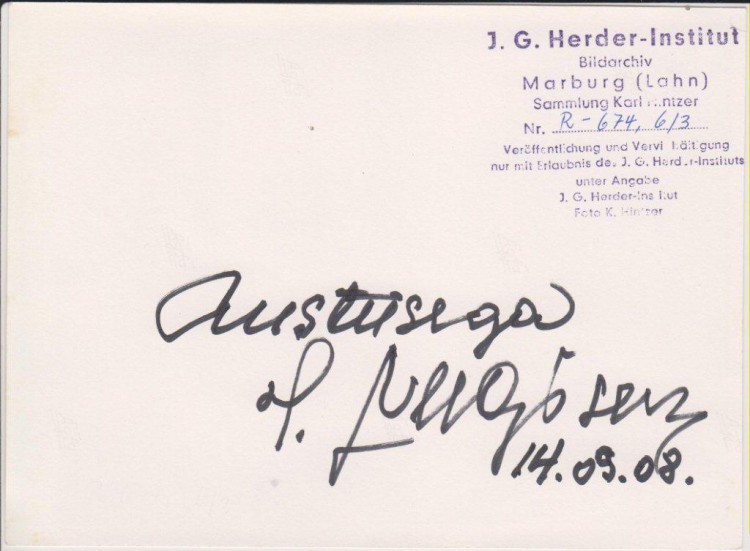 J. G. Herder-Institut
Bildarchiv
Marburg (Lahn)
Sammlung Karl Hintzer
Nr. R-674, 6/3
Veröffentlichung und Vervielfältigung
nur mit Erlaubnis des J. G. Herder-Instituts
unter Angabe
J. G. Herder-Institut
Foto K. Hintzer
Austusega
14.09.08.